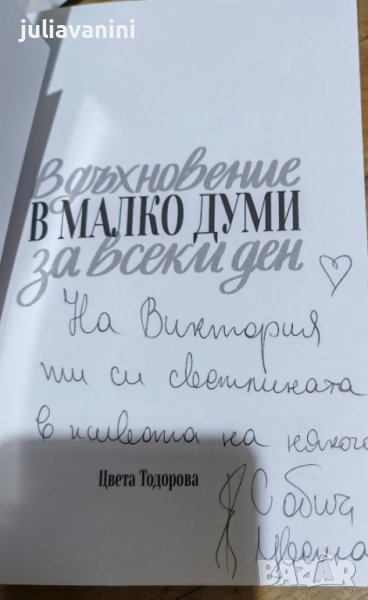 juliavanini
Вдъхновение
В МАЛКО ДУМИ
за всеки ден
На Виктория
ти си светлината
в живота на някого
Цвета Тодорова
С обич,
Цвета
BAZAR